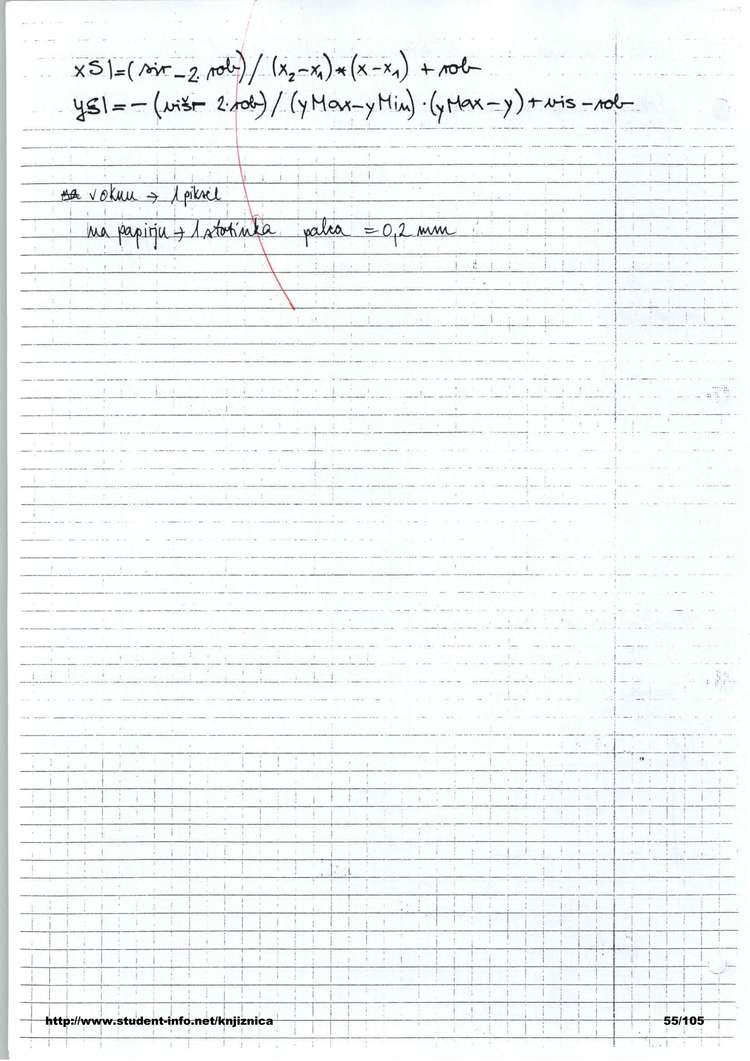 xSl=(sir-2.rob)/(x₂-x₁)*(x-x₁)+rob
ySl=-(viš-2.rob)/(yMax-yMin)·(yMax-y)+vis-rob
v oknu → 1 piksel
na papirju → 1 stotinka palca = 0,2 mm
http://www.student-info.net/knjiznica 55/105